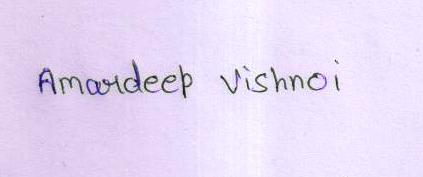 Amardeep Vishnoi